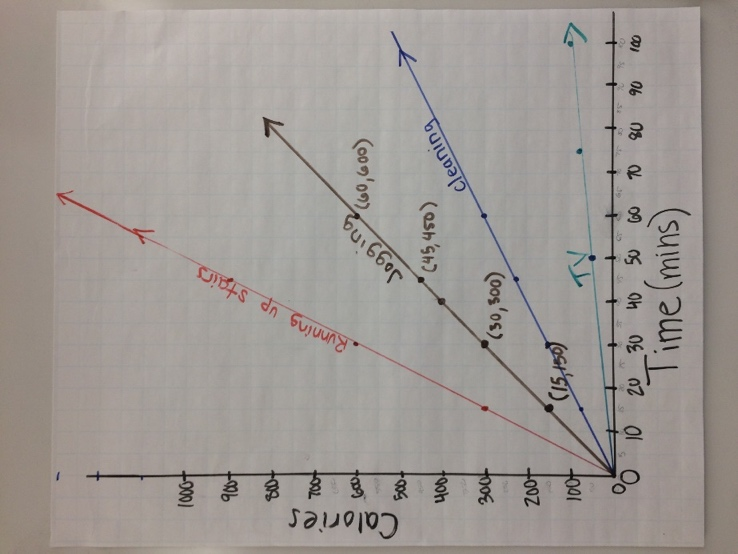 Calories
1000
900
800
700
600
500
400
300
200
100
0
0
10
20
30
40
50
60
70
80
90
100
Time (mins)
Running up stairs
Jogging
(60,600)
(45,450)
(30,300)
(15,150)
cleaning
TV